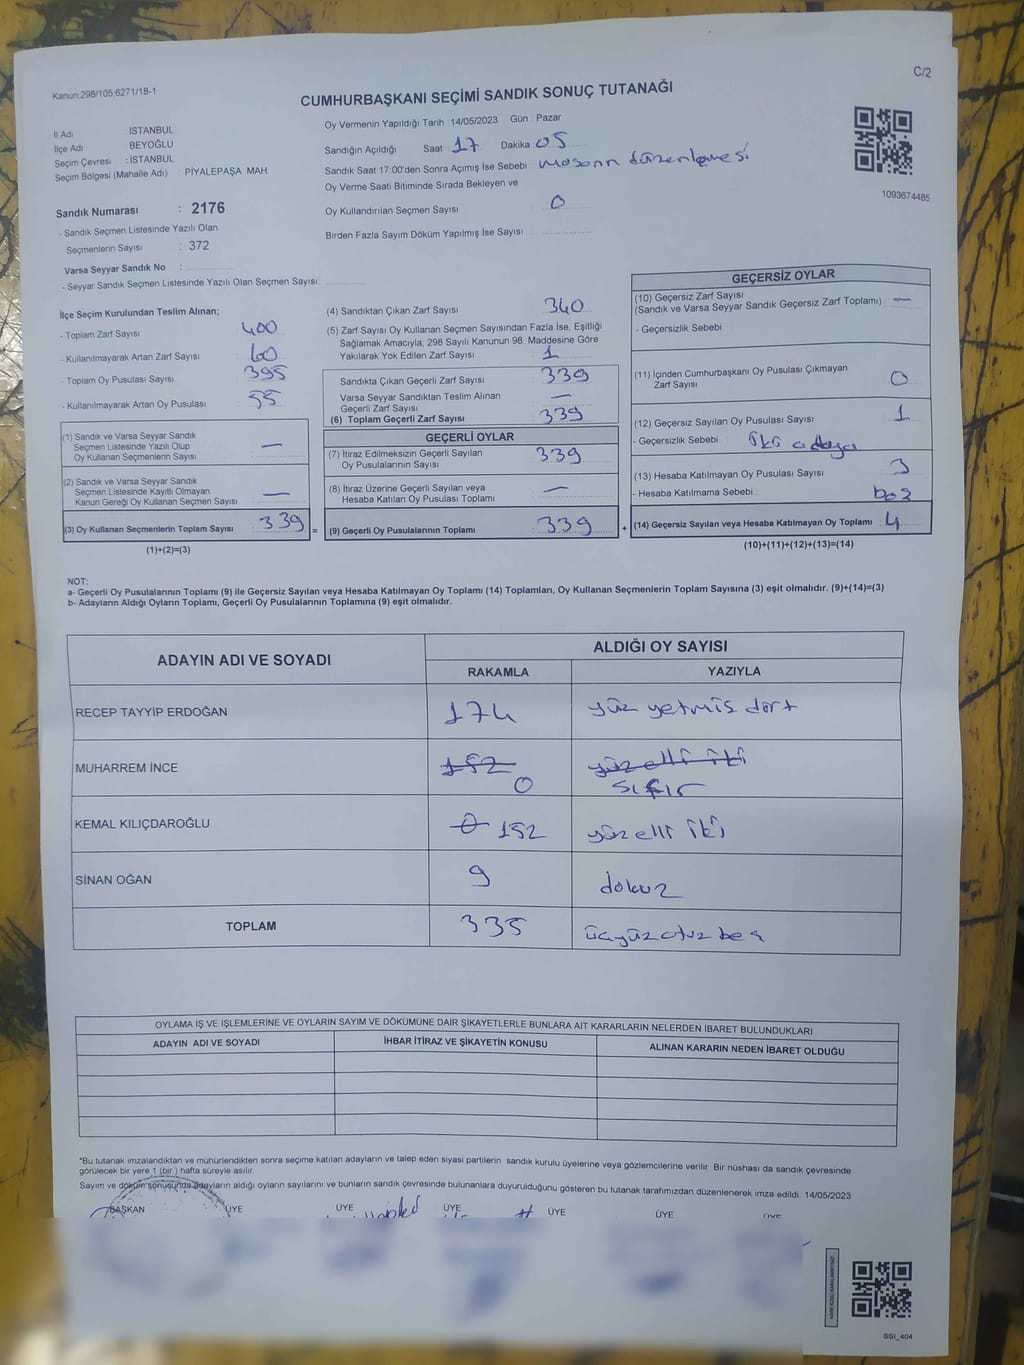 C/2
Kanun:298/105;6271/18-1
CUMHURBAŞKANI SEÇİMİ SANDIK SONUÇ TUTANAĞI
İl Adı İSTANBUL
İlçe Adı BEYOĞLU
Seçim Çevresi : İSTANBUL
Seçim Bölgesi (Mahalle Adı) : PİYALEPAŞA MAH
Sandık Numarası : 2176
- Sandık Seçmen Listesinde Yazılı Olan
Seçmenlerin Sayısı : 372
Varsa Seyyar Sandık No :
- Seyyar Sandık Seçmen Listesinde Yazılı Olan Seçmen Sayısı:
Oy Vermenin Yapıldığı Tarih : 14/05/2023 Gün : Pazar
Sandığın Açıldığı Saat 17 Dakika 05
Sandık Saat 17:00'den Sonra Açımış İse Sebebi masanın düzenlemesi
Oy Verme Saati Bitiminde Sırada Bekleyen ve
Oy Kullandırılan Seçmen Sayısı 0
Birden Fazla Sayım Döküm Yapılmış İse Sayısı
1093674485
İlçe Seçim Kurulundan Teslim Alınan;
- Toplam Zarf Sayısı 400
- Kullanılmayarak Artan Zarf Sayısı 60
- Toplam Oy Pusulası Sayısı 395
- Kullanılmayarak Artan Oy Pusulası 55
(1) Sandık ve Varsa Seyyar Sandık
Seçmen Listesinde Yazılı Olup
Oy Kullanan Seçmenlerin Sayısı —
(2) Sandık ve Varsa Seyyar Sandık
Seçmen Listesinde Kayıtlı Olmayan
Kanun Gereği Oy Kullanan Seçmen Sayısı —
(3) Oy Kullanan Seçmenlerin Toplam Sayısı 339 =
(1)+(2)=(3)
(4) Sandıktan Çıkan Zarf Sayısı 340
(5) Zarf Sayısı Oy Kullanan Seçmen Sayısından Fazla İse, Eşitliği
Sağlamak Amacıyla; 298 Sayılı Kanunun 98. Maddesine Göre
Yakılarak Yok Edilen Zarf Sayısı 1
Sandıkta Çıkan Geçerli Zarf Sayısı 339
Varsa Seyyar Sandıktan Teslim Alınan
Geçerli Zarf Sayısı —
(6) Toplam Geçerli Zarf Sayısı 339
GEÇERLİ OYLAR
(7) İtiraz Edilmeksizin Geçerli Sayılan
Oy Pusulalarının Sayısı 339
(8) İtiraz Üzerine Geçerli Sayılan veya
Hesaba Katılan Oy Pusulası Toplamı —
(9) Geçerli Oy Pusulalarının Toplamı 339 +
GEÇERSİZ OYLAR
(10) Geçersiz Zarf Sayısı
(Sandık ve Varsa Seyyar Sandık Geçersiz Zarf Toplamı) —
- Geçersizlik Sebebi
(11) İçinden Cumhurbaşkanı Oy Pusulası Çıkmayan
Zarf Sayısı 0
(12) Geçersiz Sayılan Oy Pusulası Sayısı 1
- Geçersizlik Sebebi : iki adaya
(13) Hesaba Katılmayan Oy Pusulası Sayısı 3
- Hesaba Katılmama Sebebi boş
(14) Geçersiz Sayılan veya Hesaba Katılmayan Oy Toplamı : 4
(10)+(11)+(12)+(13)=(14)
NOT:
a- Geçerli Oy Pusulalarının Toplamı (9) ile Geçersiz Sayılan veya Hesaba Katılmayan Oy Toplamı (14) Toplamları, Oy Kullanan Seçmenlerin Toplam Sayısına (3) eşit olmalıdır. (9)+(14)=(3)
b- Adayların Aldığı Oyların Toplamı, Geçerli Oy Pusulalarının Toplamına (9) eşit olmalıdır.
ADAYIN ADI VE SOYADI ALDIĞI OY SAYISI
RAKAMLA YAZIYLA
RECEP TAYYİP ERDOĞAN 174 yüz yetmiş dört
MUHARREM İNCE 152 yüzelli iki
0 sıfır
KEMAL KILIÇDAROĞLU 0 152 yüzelli iki
SİNAN OĞAN 9 dokuz
TOPLAM 335 üçyüzotuz beş
OYLAMA İŞ VE İŞLEMLERİNE VE OYLARIN SAYIM VE DÖKÜMÜNE DAİR ŞİKAYETLERLE BUNLARA AİT KARARLARIN NELERDEN İBARET BULUNDUKLARI
ADAYIN ADI VE SOYADI İHBAR İTİRAZ VE ŞİKAYETİN KONUSU ALINAN KARARIN NEDEN İBARET OLDUĞU
*Bu tutanak imzalandıktan ve mühürlendikten sonra seçime katılan adayların ve talep eden siyasi partilerin sandık kurulu üyelerine veya gözlemcilerine verilir. Bir nüshası da sandık çevresinde
görülecek bir yere 1 (bir ) hafta süreyle asılır
Sayım ve döküm sonucunda adayların aldığı oyların sayılarını ve bunların sandık çevresinde bulunanlara duyurulduğunu gösteren bu tutanak tarafımızdan düzenlenerek imza edildi. 14/05/2023
BAŞKAN ÜYE ÜYE ÜYE ÜYE ÜYE ÜYE
SSI_404